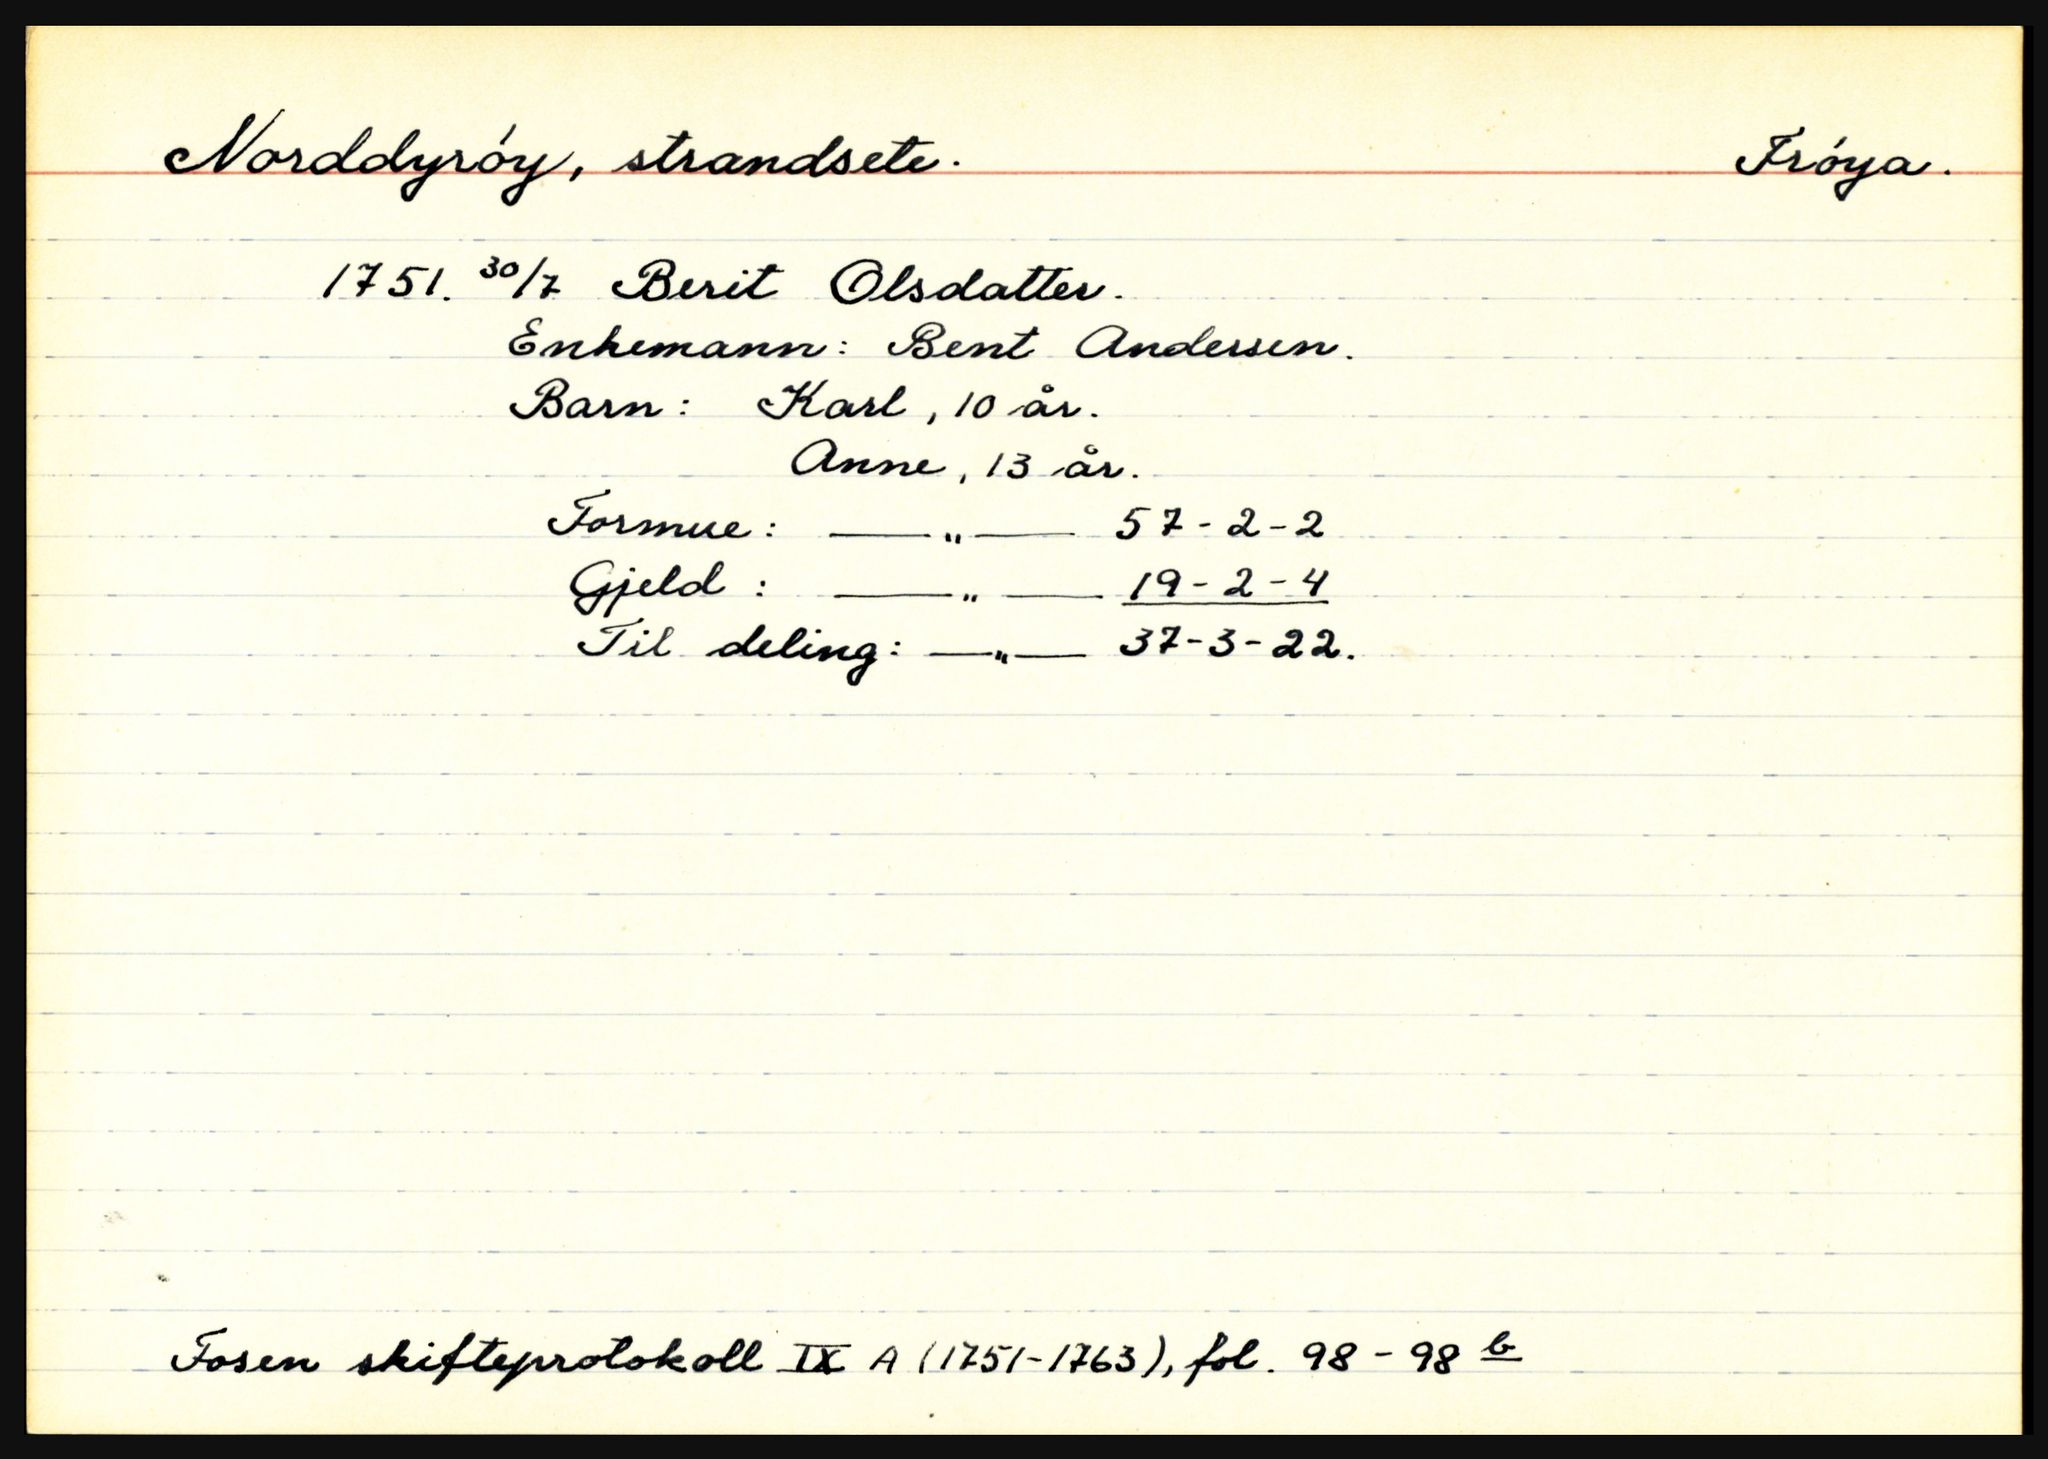 Norddyröy, strandsete. Fröya.
1751. 30/7 Berit Olsdatter.
Enkemann: Bent Andersen.
Barn: Karl, 10 år.
Anne, 13 år.
Formue: —„— 57-2-2
Gjeld: —„— 19-2-4
Til deling: —„— 37-3-22.
Fosen skifteprotokoll IX A (1751-1763), fol. 98-98 b